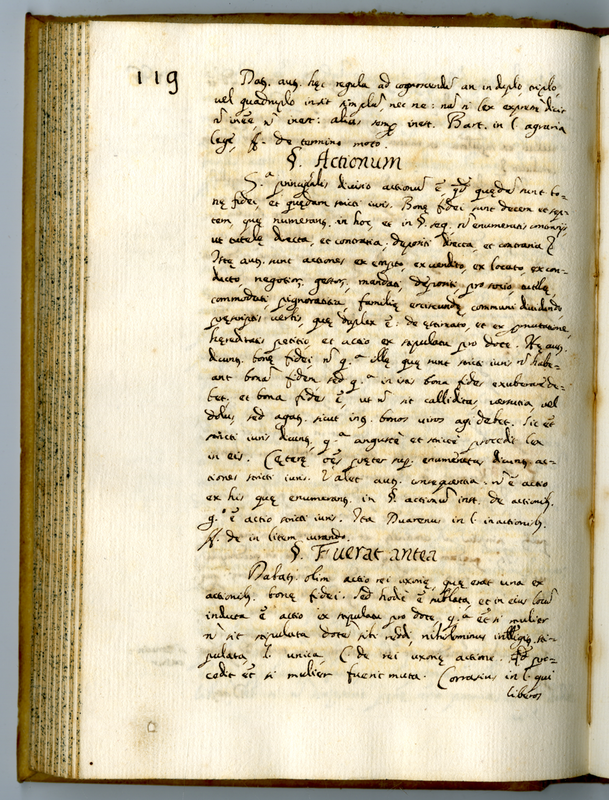 119
Dat. aut. hęc regula ad cognoscendū an in duplo, triplo,
vel quadruplo insit simplū, nec ne: nā si lex exprimit
nō inēe nō inest: alias semp inest. Bart. in l. agraria
lege, ff. de termino moto.
§. Actionum
S.ª principalis divisio actionū ē, qd quędā sunt bo-
nę fidei, et quędam stricti iuris. Bonę fidei sunt decem et sep-
tem, quę numerant. in hoc, et in §. seq.
ut tutelę directa, et contraria: depositi directa, et contraria
Istę aut. sunt actiones ex empto, ex vendito, ex locato, ex con-
ducto, negotior. gestor, mandati, depositi, pro socio, tutelę,
commodati, pignoratitia, familię erciscundę, communi dividundo,
pręscriptis verbis, quę duplex ē: de estimato, et ex permutatione,
hęreditatis petitio et actio ex stipulatu pro dote. Hę aut.
dicunt. bonę fidei, nō q.ª illę quę sunt stricti iuris nō habe-
ant bonā fidem sed q.ª in istis bona fides exuberare de-
bet, et bona fides ē, ut nō sit calliditas, versutia, vel
dolus, sed agat. sicut int. bonos viros agi debet. Sic et
stricti iuris dicunt, q.ª angustē et strictē procedit lex
in eis. Cęterę oēs pręter sup. enumeratas dicunt. ac-
tiones stricti iuris. Valet aut. consequentia. nō ē actio
ex his quę enumerant. in §. actionū inst. de actionib.
g.º ē actio stricti iuris. Ita Duarenus in l. in actionib.
ff. de in litem iurando.
§. Fuerat antea
Dabat. olim actio rei uxorię, quę erat una ex
actionib. bonę fidei. Sed hodiē ē sublata, et in eius locū
inducta ē actio ex stipulatu pro dote, q.ª etsi mulier
nō sit stipulata dotē sibi reddi, nihilominus intelligit. sti-
pulata, l. unica, C. de rei uxorię actione. Qd pro-
cedit et si mulier fuerit muta. Corrasius in l. qui
liberos